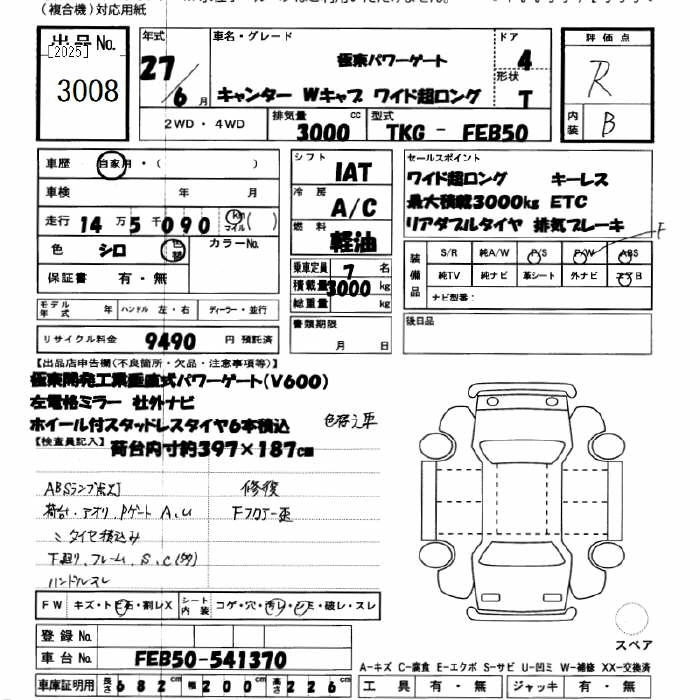 (複合機)対応用紙
出品No.
[2025]
3008
年式
27/6月
車名・グレード
極東パワーゲート
キャンター Wキャブ ワイド超ロング
ドア
4
形状
T
評価点
R
内装
B
2WD・4WD
排気量
3000
cc
型式
TKG - FEB50
車歴
自家用・(            )
車検
年 月
走行
14万5千090
km
マイル
( )
色
シロ
色替
カラーNo.
保証書
有・無
シフト
IAT
冷房
A/C
燃料
軽油
乗車定員
7
名
積載量
3000
kg
総重量
kg
セールスポイント
ワイド超ロング キーレス
最大積載3000kg ETC
リアダブルタイヤ 排気ブレーキ
F
装備品
S/R 純A/W P/S P/W ABS
純TV 純ナビ 革シート 外ナビ エアB
ナビ型番:
モデル年式
年
ハンドル 左・右
ディーラー・並行
リサイクル料金
9490
円 預託済
書類期限
月 日
後日品
【出品店申告欄(不良箇所・欠品・注意事項等)】
極東開発工業垂直式パワーゲート(V600)
左電格ミラー 社外ナビ
ホイール付スタッドレスタイヤ6本積込
色替え車
【検査員記入】
荷台内寸約397×187cm
ABSランプ点灯
修復
荷台・アオリ、Pゲート A、U
Fフロアー歪
〃 タイヤ積込み
下廻り、フレーム、S、C
ハンドルスレ
FW
キズ・トビ石・割レX
シート内装
コゲ・穴・汚レ・シミ・破レ・スレ
登録No.
車台No.
FEB50-541370
車庫証明用
長さ
682
cm
幅
200
cm
高さ
226
cm
スペア
A-キズ C-腐食 E-エクボ S-サビ U-凹ミ W-補修 XX-交換済
工具
有・無
ジャッキ
有・無